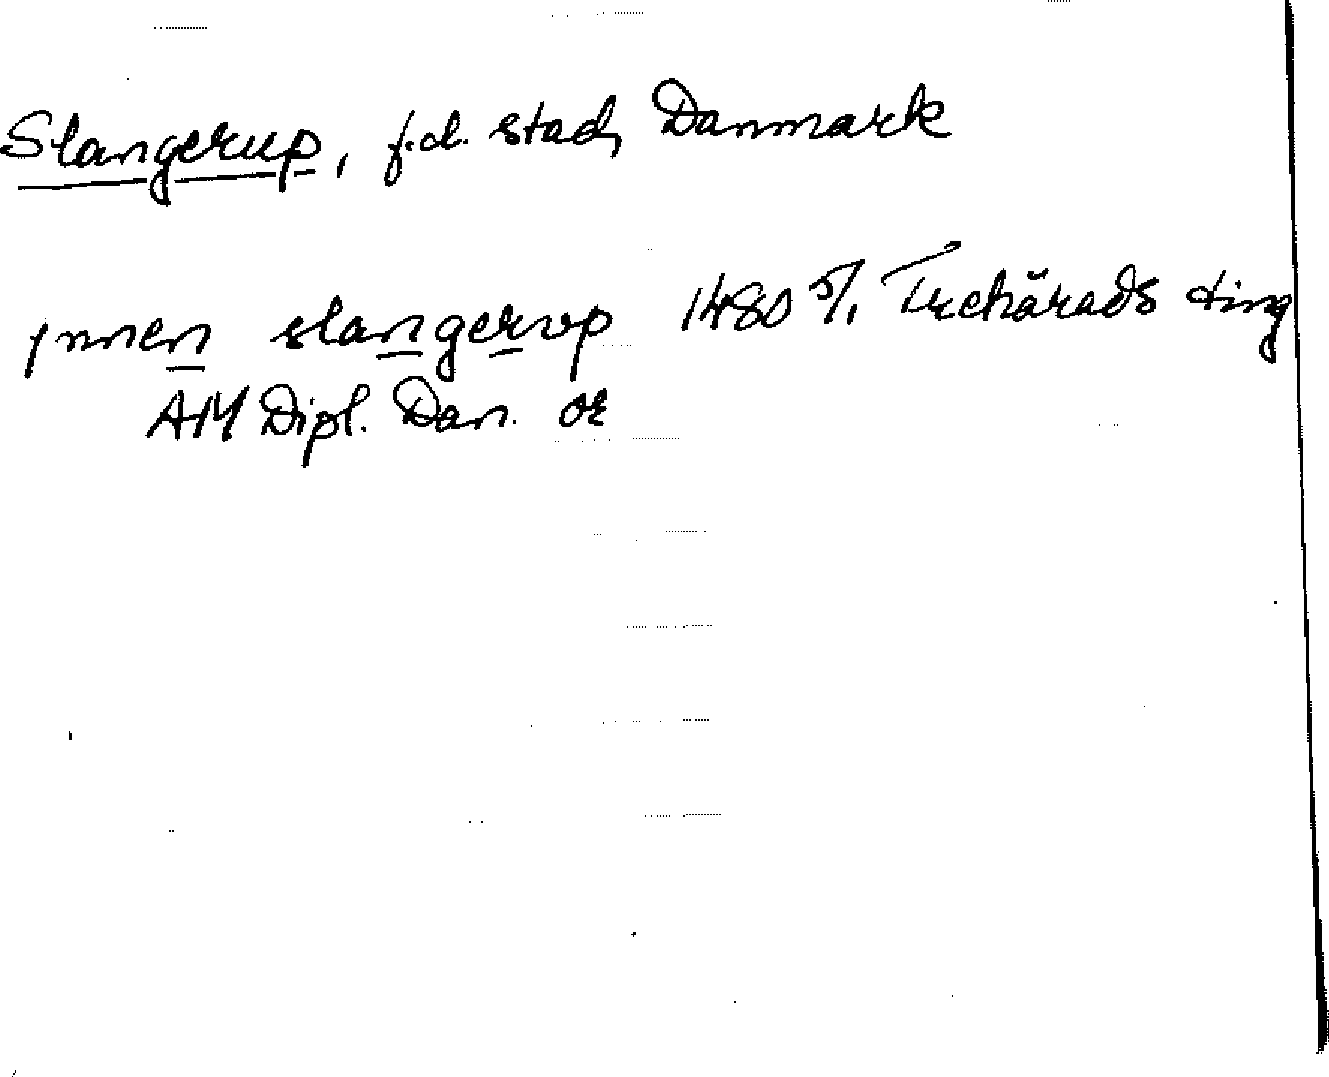 Slangerup, f.d. stad, Danmark
ynnen slangerup 1480 5/1 Trehärads ting
AM Dipl. Dan. or